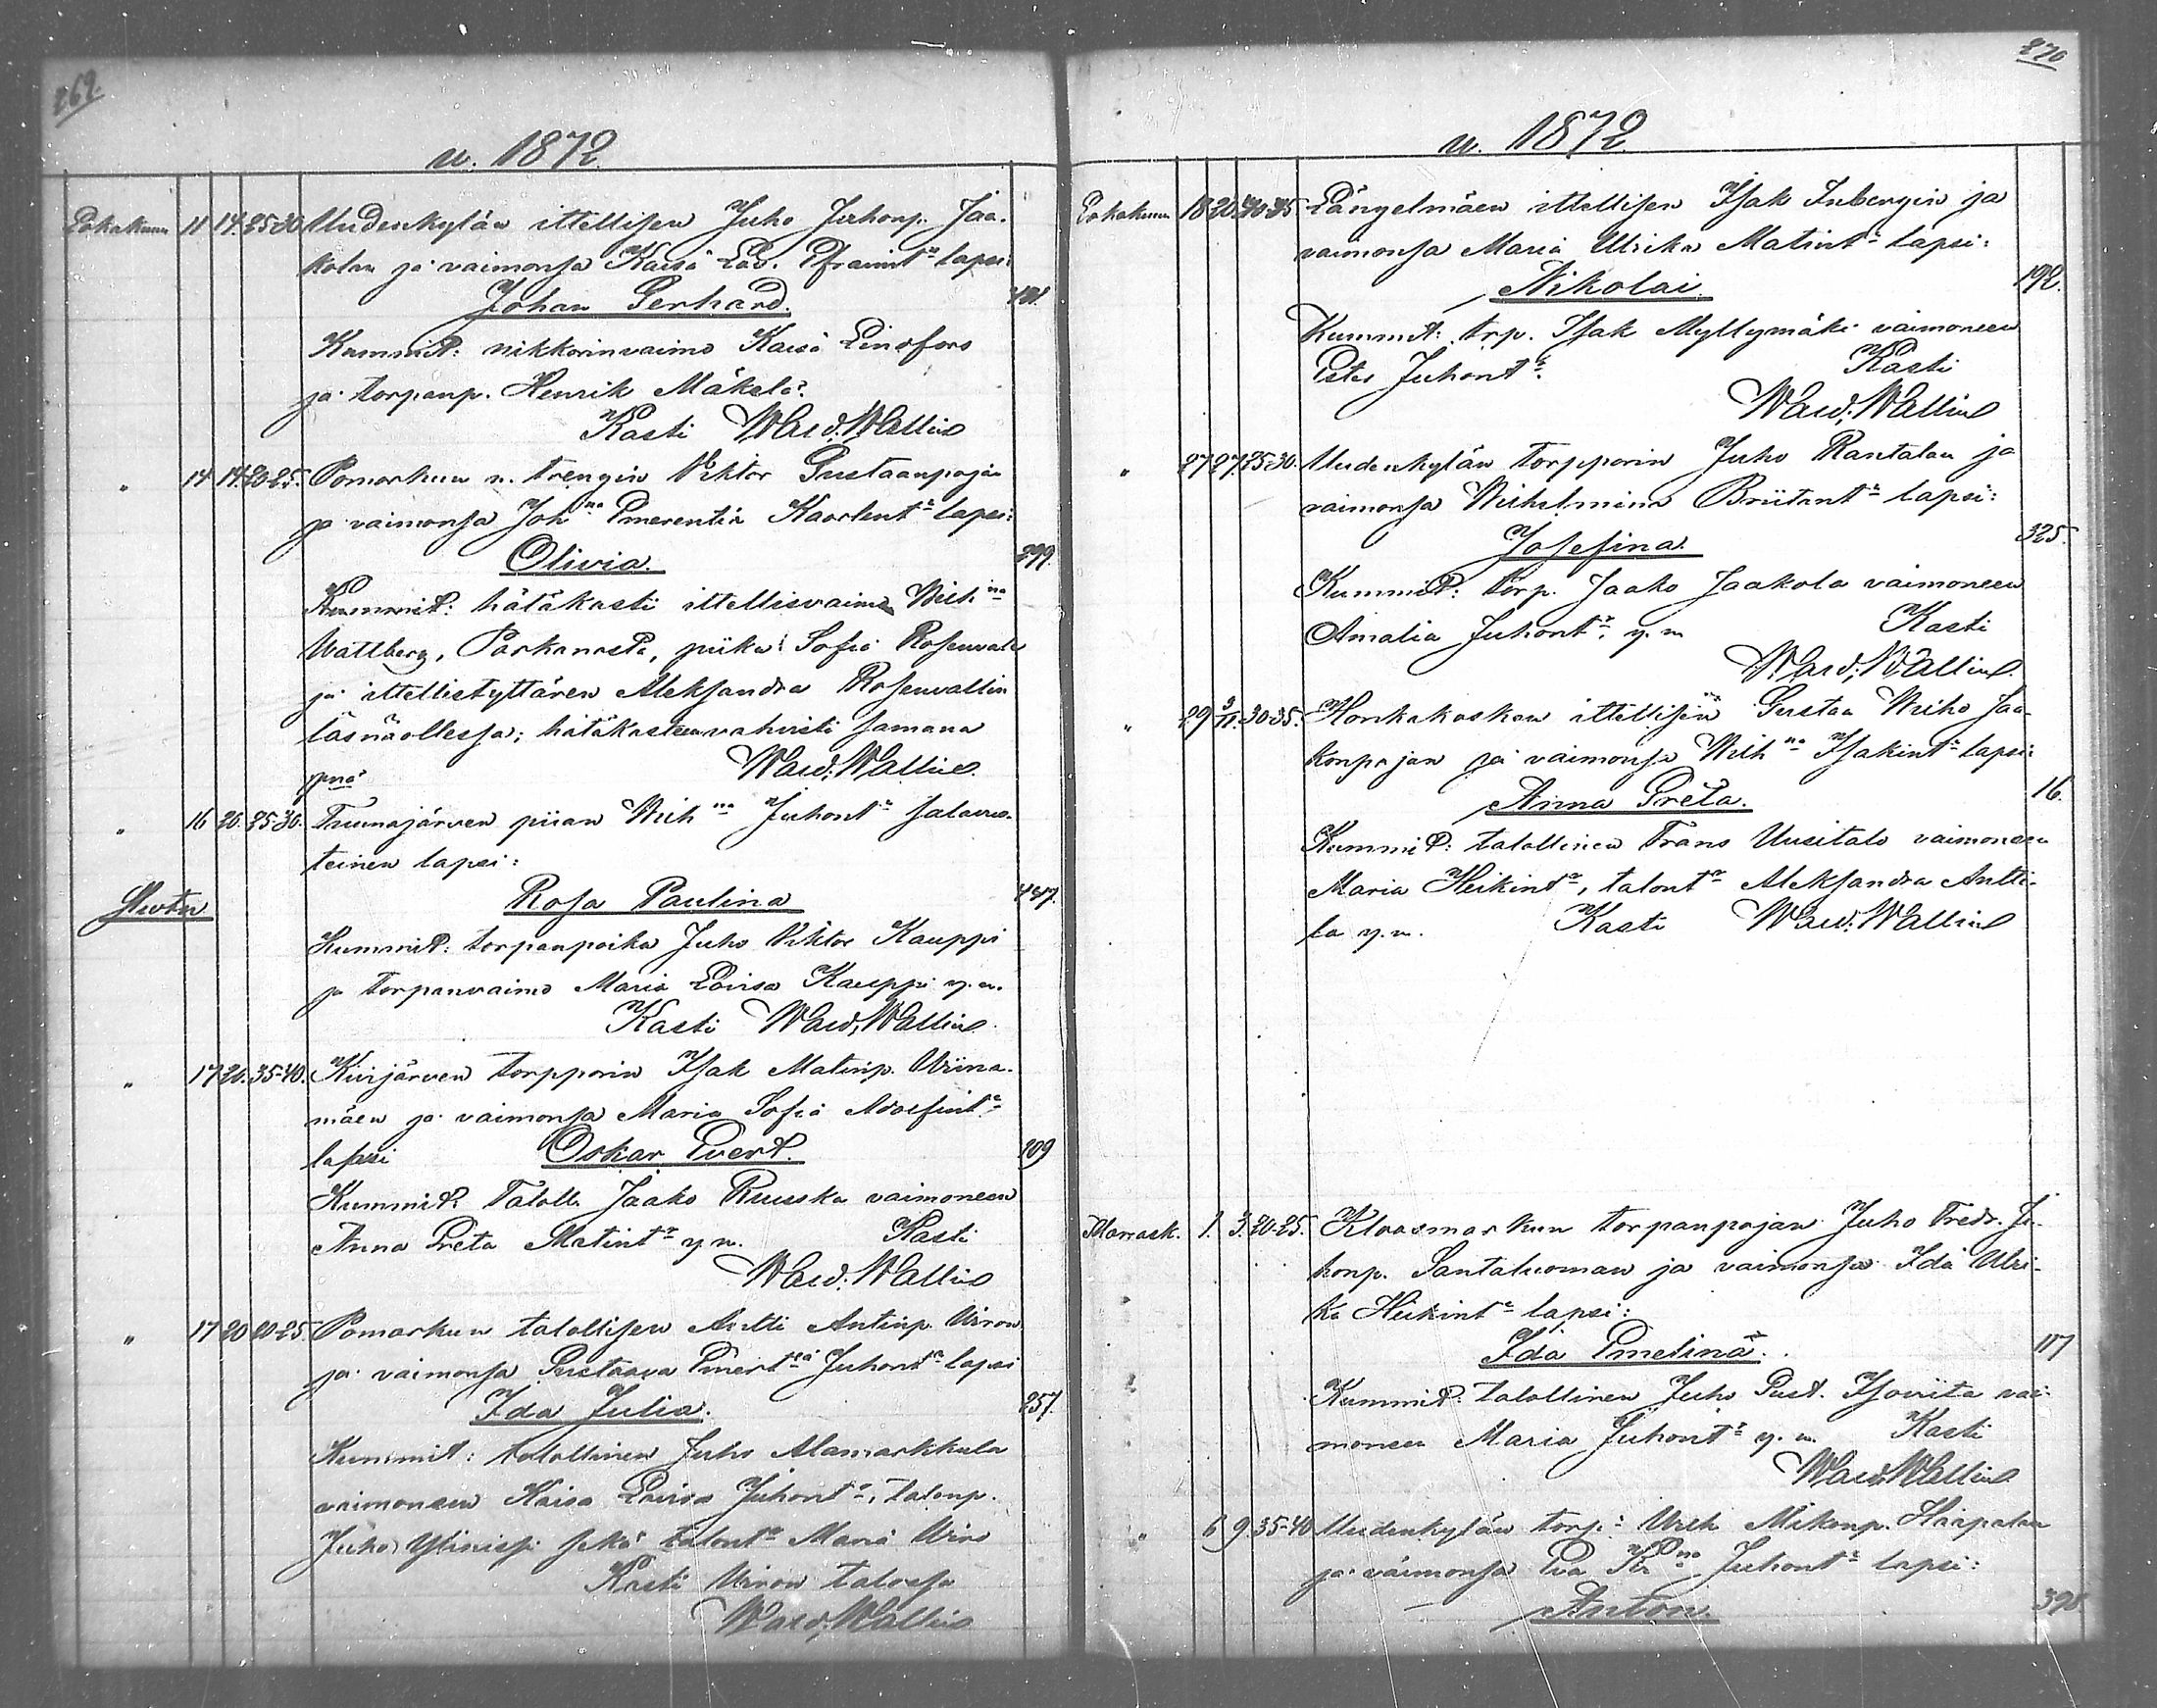 269.
v. 1872
Lokakuun 11 14. 25-30 Uudenkylän ittellisen Juho Juhonp. Jaa-
kolan ja vaimonsa Kaisa Lov. Efraimt:r lapsi:
Johan Gerhard. 401.
Kummit: nikkarinvaimo Kaisa Lindfors
ja torpanp. Henrik Mäkelä.
Kasti Wald. Wallin
" 14 14. 20-25. Pomarkun n. trengin Viktor Gustaanpojan
ja vaimonsa Joh:na Emerentia Kaarlent:r lapsi:
Olivia. 299.
Kummit: hätäkasti ittellisvaimo Wilh:na
Wattberg, Parkanosta, piika Sofia Rosenvall
ja ittellistyttären Aleksandra Rosenvallin
läsnäollessa; hätäkasteen vahvisti samana
pnä Wald. Wallin
" 16 20. 25-30. Tuunajärven piian Wilh:na Juhont:r salavuo-
teinen lapsi:
Äpärä
Rosa Paulina 447.
Kummit: torpanpoika Juho Viktor Kauppi
ja torpanvaimo Maria Lovisa Kauppi y. m.
Kasti Wald. Wallin
" 17 20. 35-40. Kivijärven torpparin Isak Matinp. Viina-
mäen ja vaimonsa Maria Sofia Adolfint:r
lapsi Oskar Evert. 109
Kummit: Taloll. Jaako Ruuska vaimoneen
Anna Greta Matint:r y m. Kasti
Wald. Wallin
" 17 20 20-25 Pomarkun talollisen Antti Antinp. Viron
ja vaimonsa Gustaava Emert:ia Juhont:r lapsi
Ida Julia. 257.
Kummit: talollinen Juho Alamarkkula
vaimoneen Kaisa Lovisa Juhont:r, talonp.
Juho Ylinissi sekä talont:r Maria Viro
Kasti Viron talossa
Wald. Wallin
270
v. 1872
Lokakuun 18 20. 40-45 Längelmäen ittellisen Isak Inbergin ja
vaimonsa Maria Ulrika Matint:r lapsi:
Nikolai. 192.
Kummit: trp. Isak Myllymäki vaimoneen
Ester Juhont:r. Kasti
Wald. Wallin
" 27 27. 25-30. Uudenkylän torpparin Juho Rantalan ja
vaimonsa Wilhelmina Briitant:r lapsi:
Josefina. 325.
Kummit: torp. Jaako Jaakola vaimoneen
Amalia Juhont:r, y. m Kasti
Wald. Wallin.
" 29 3/11. 30-35. Honkakosken ittellisen Gustaa Wilho Jaa-
konpojan ja vaimonsa Wilh:na Isakint:r lapsi:
Anna Greta. 16.
Kummit: talollinen Frans Uusitalo vaimoneen
Maria Heikint:r, talont:r Aleksandra Antti-
la y. m. Kasti Wald. Wallin
Marrask. 1. 3. 20-25. Klaasmarkun torpanpojan Juho Fredr. Ju-
honp. Santaluoman ja vaimonsa Ida Ulri-
ka Heikint:r lapsi:
Ida Emelina. 117
Kummit: talollinen Juho Gust. Isoviita vai-
moneen Maria Juhont:r y. m. Kasti
Wald. Wallin
" 6 9. 35-40 Uudenkylän torp. Wilh Mikonp. Haapalan
ja vaimonsa Eva Kr:na Juhont:r lapsi:
Anton. 398